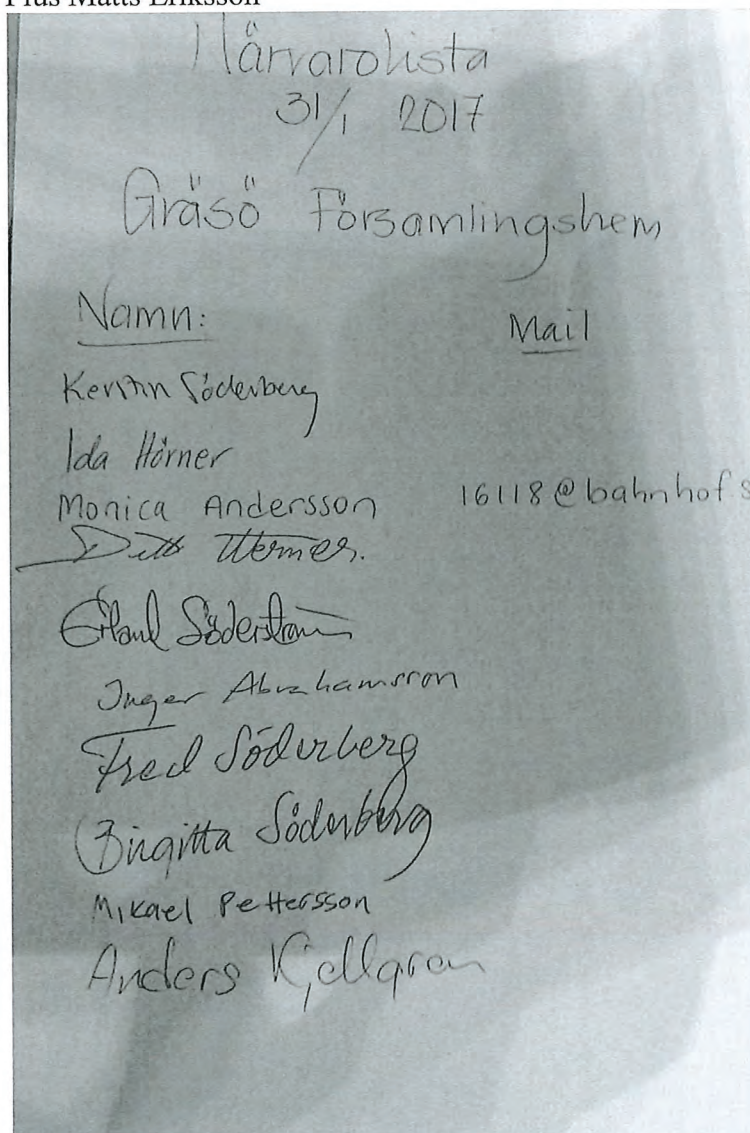 Plus Matts Eriksson
Närvarolista
31/1 2017
Gräsö Församlingshem
Namn: Mail
Kerstin Söderberg
Ida Hörner
Monica Andersson 16118@bahnhof s
Werner.
Söderström
Inger Abrahamsson
Fred Söderberg
Birgitta Söderberg
Mikael Pettersson
Anders Kjellgren